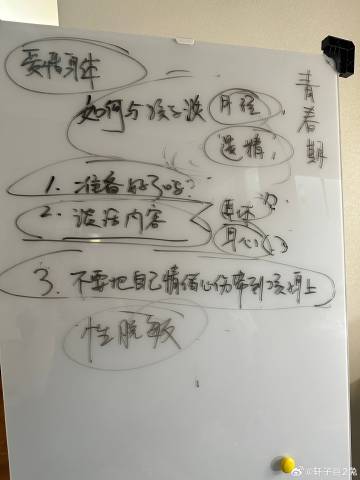 爱惜身体
青春期
如何与孩子谈 月经,
遗精,
1. 准备好了吗?
2. 谈话内容
身心
3. 不要把自己情伤带到孩子身上
性脱敏
@轩子巨2兔